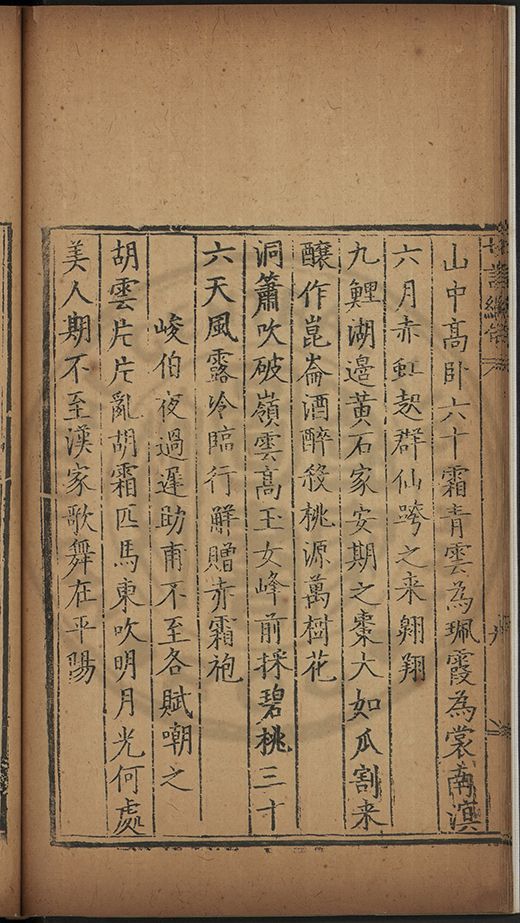 山中高卧六十霜青雲為珮霞為裳南溟
六月赤虹起群仙跨之来翱翔
九鯉湖邉黄石家安期之棗大如瓜割来
醸作崑崙酒醉殺桃源萬樹花
洞簫吹破嶺雲高玉女峰前採碧桃三十
六天風露冷臨行觧贈赤霜袍
峻伯夜過遲助甫不至各賦嘲之
胡雲片片亂胡霜匹馬東吹明月光何處
美人期不至漢家歌舞在平陽